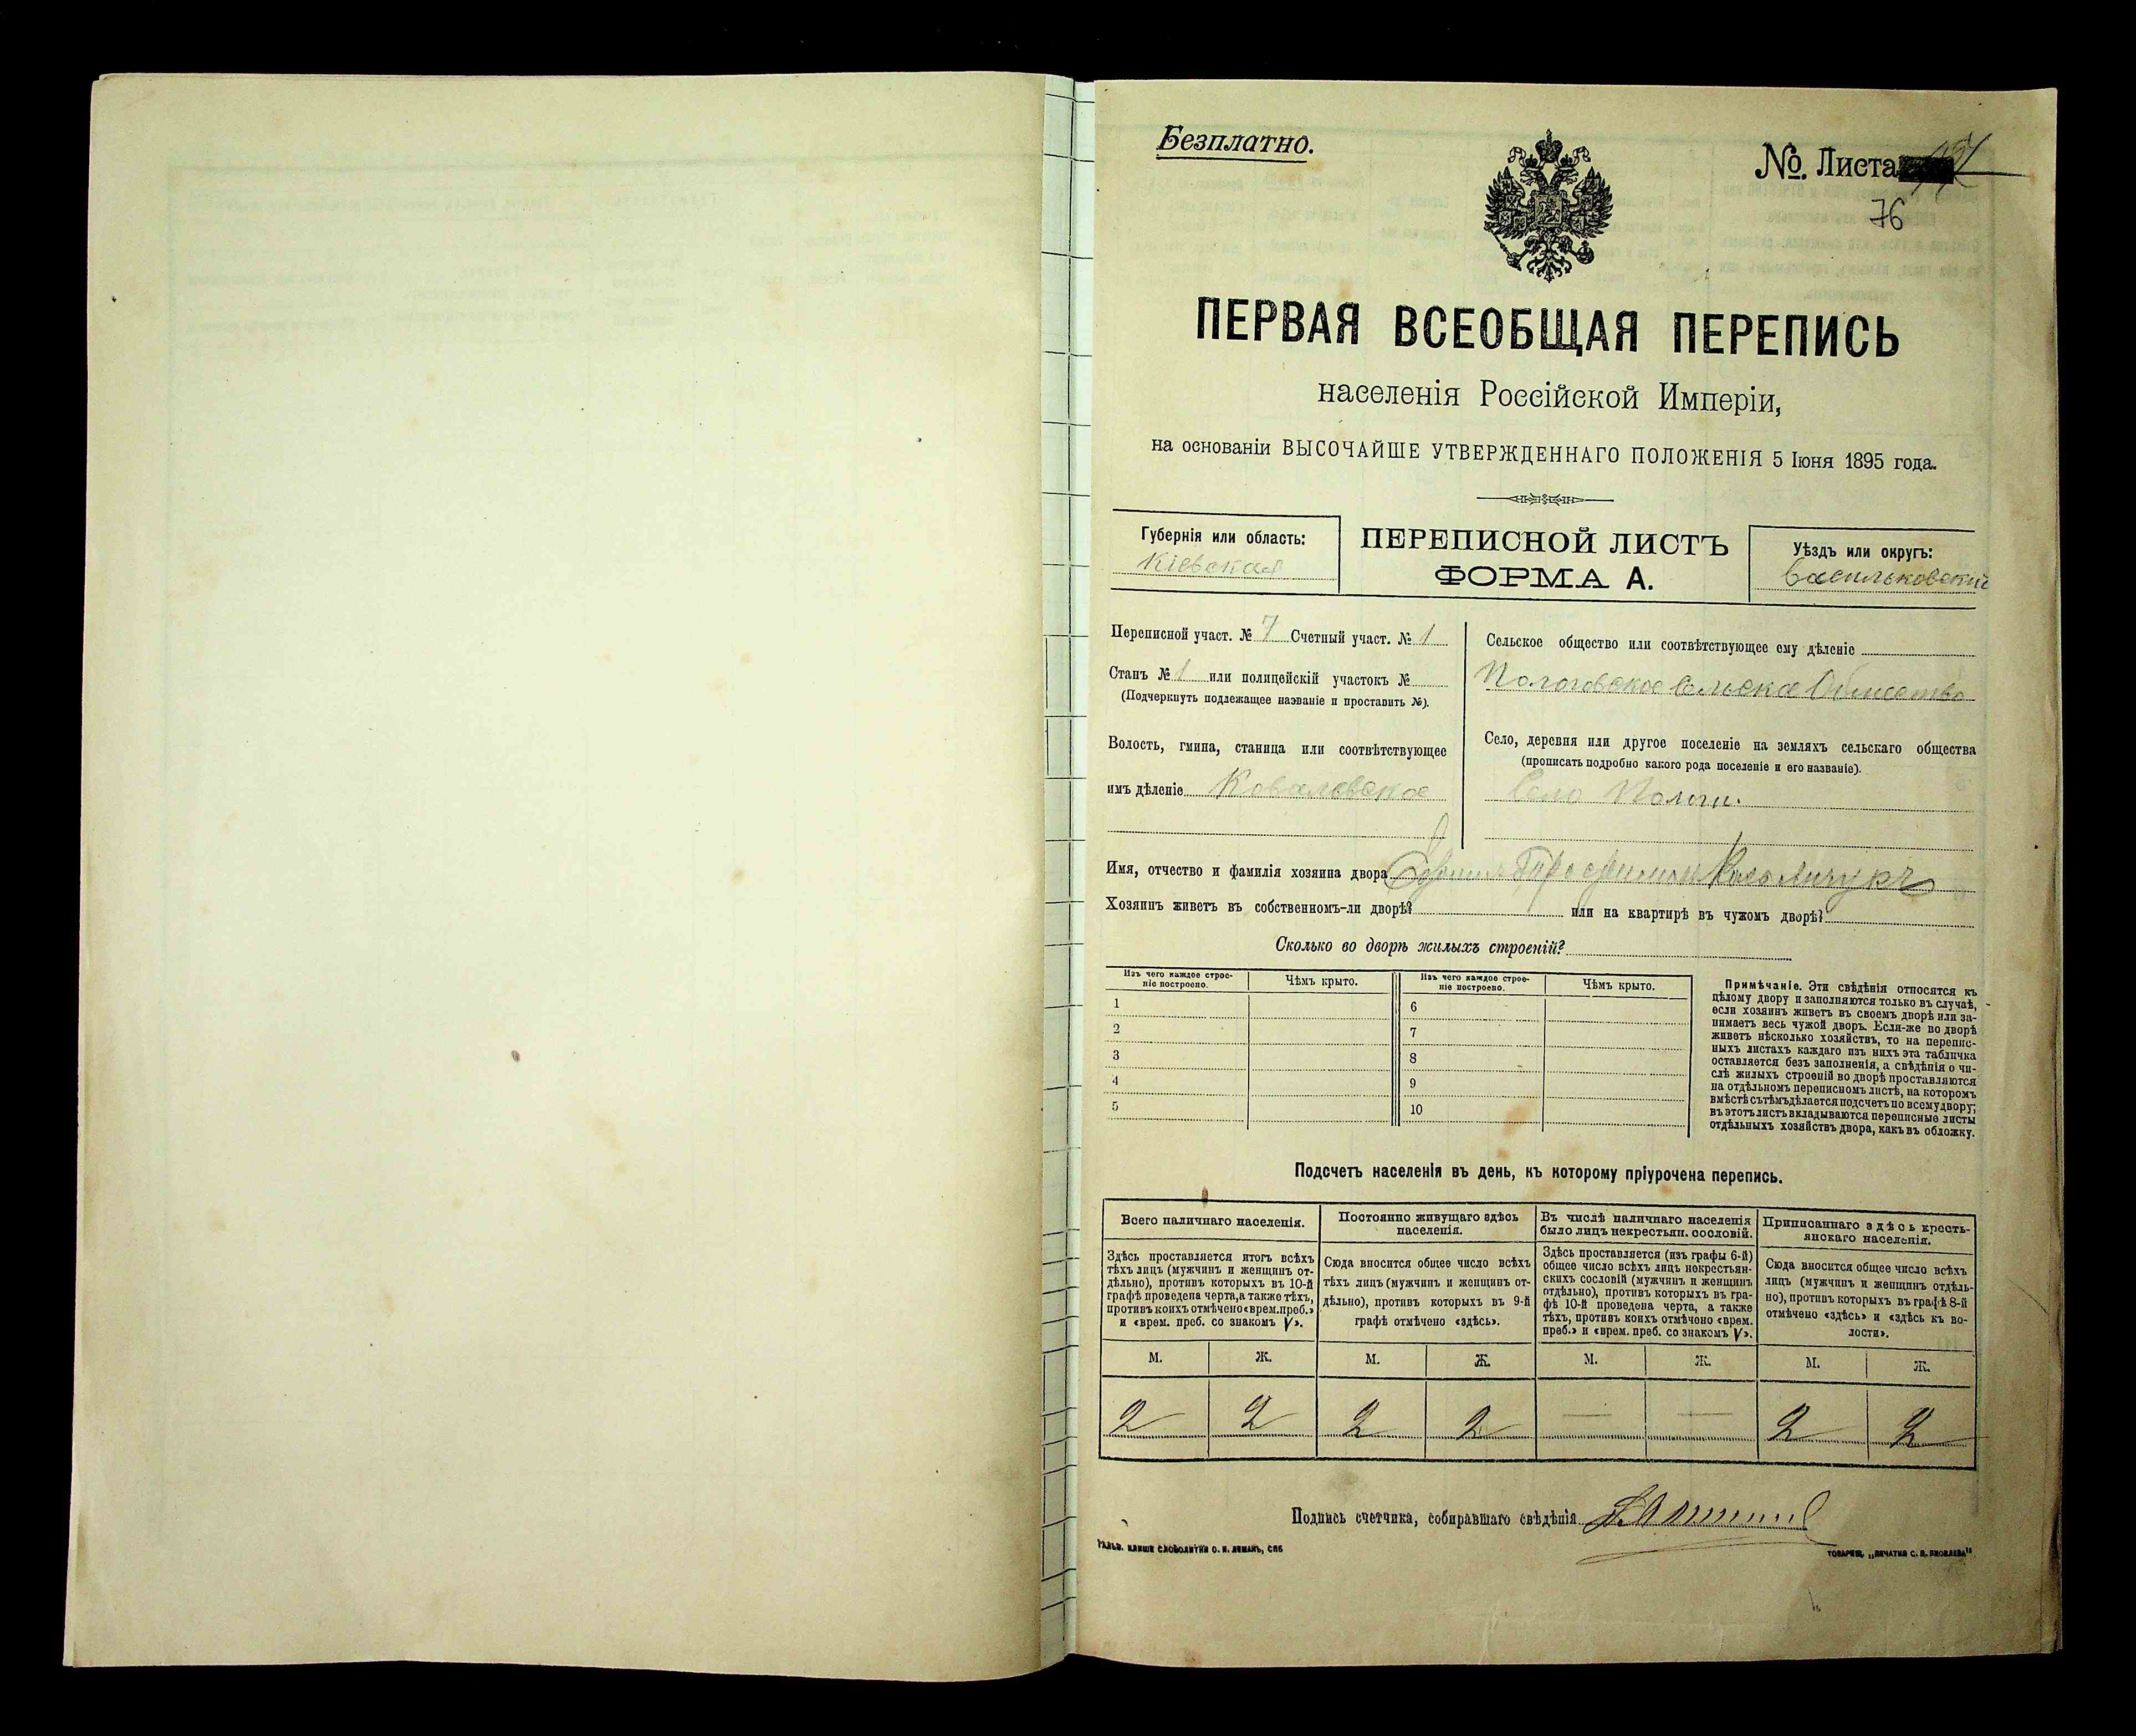 Безплатно.
№. Листа
76
ПЕРВАЯ ВСЕОБЩАЯ ПЕРЕПИСЬ
населенія Россійской Имперіи,
на основаніи ВЫСОЧАЙШЕ УТВЕРЖДЕННАГО ПОЛОЖЕНІЯ 5 Іюня 1895 года.
Губернія или область:
Кіевская
ПЕРЕПИСНОЙ ЛИСТЪ
ФОРМА А.
Уѣздъ или округъ:
Васильковскій
Переписной участ. № 7 Счетный участ. № 1
Станъ № 1 или полицейскій участокъ №
(Подчеркнуть подлежащее названіе и проставить №).
Волость, гмина, станица или соотвѣтствующее
имъ дѣленіе Ковалевское
Сельское общество или соотвѣтствующее ему дѣленіе
Пологовское Сельское Общество
Село, деревня или другое поселеніе на земляхъ сельскаго общества
(прописать подробно какого рода поселеніе и его названіе).
Село Пологи.
Имя, отчество и фамилія хозяина двора
Хозяинъ живетъ въ собственномъ-ли дворѣ? или на квартирѣ въ чужомъ дворѣ?
Сколько во дворѣ жилыхъ строеній?
Изъ чего каждое строе-
ніе построено.
Чѣмъ крыто.
Изъ чего каждое строе-
ніе построено.
Чѣмъ крыто.
1
2
3
4
5
6
7
8
9
10
Примѣчаніе. Эти свѣдѣнія относятся къ
цѣлому двору и заполняются только въ случаѣ,
если хозяинъ живетъ въ своемъ дворѣ или за-
нимаетъ весь чужой дворъ. Если-же во дворѣ
живетъ нѣсколько хозяйствъ, то на перепис-
ныхъ листахъ каждаго изъ нихъ эта табличка
оставляется безъ заполненія, а свѣдѣнія о чи-
слѣ жилыхъ строеній во дворѣ проставляются
на отдѣльномъ переписномъ листѣ, на которомъ
вмѣстѣ съ тѣмъ дѣлается подсчетъ по всему двору;
въ этотъ листъ вкладываются переписные листы
отдѣльныхъ хозяйствъ двора, какъ въ обложку.
Подсчетъ населенія въ день, къ которому пріурочена перепись.
Всего наличнаго населенія.
Здѣсь проставляется итогъ всѣхъ
тѣхъ лицъ (мужчинъ и женщинъ от-
дѣльно), противъ которыхъ въ 10-й
графѣ проведена черта, а также тѣхъ,
противъ коихъ отмѣчено «врем. преб.»
и «врем. преб. со знакомъ V».
Постоянно живущаго здѣсь
населенія.
Сюда вносится общее число всѣхъ
тѣхъ лицъ (мужчинъ и женщинъ от-
дѣльно), противъ которыхъ въ 9-й
графѣ отмѣчено «здѣсь».
Въ числѣ наличнаго населенія
было лицъ некрестьян. сословій.
Здѣсь проставляется (изъ графы 6-й)
общее число всѣхъ лицъ некрестьян-
скихъ сословій (мужчинъ и женщинъ
отдѣльно), противъ которыхъ въ гра-
фѣ 10-й проведена черта, а также
тѣхъ, противъ коихъ отмѣчено «врем.
преб.» и «врем. преб. со знакомъ V».
Приписаннаго здѣсь кресть-
янскаго населенія.
Сюда вносится общее число всѣхъ
лицъ (мужчинъ и женщинъ отдѣль-
но), противъ которыхъ въ графѣ 8-й
отмѣчено «здѣсь» и «здѣсь къ во-
лости».
М. Ж. М. Ж. М. Ж. М. Ж.
2 2 2 2 — — 2 2
Подпись счетчика, собиравшаго свѣдѣнія
ГАЛЬВ. КЛИШЕ СЛОВОЛИТНИ О. И. ЛЕМАНЪ, СПБ
ТОВАРИЩ. „ПЕЧАТНЯ С. П. ЯКОВЛЕВА"